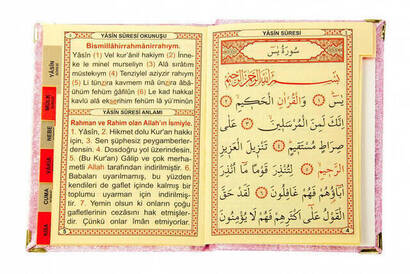 YÂSÎN SÛRESİ OKUNUŞU
Bismillâhirrahmânirrahıym.
Yâsîn (1) Vel kur'ânil hakiym (2) İnne-
ke le minel murseliyn (3) Alâ sırâtım
müstekıym (4) Tenziylel aziyzir rahiym
(5) Li tünzira kavmem mâ ünzira âbâ-
ühüm fehüm ğâfilûn (6) Le kad hakkal
kavlü alâ ekserihim fehüm lâ yü'minûn
YÂSÎN SÛRESİ ANLAMI
Rahman ve Rahim olan Allah'ın ismiyle.
1. Yâsîn, 2. Hikmet dolu Kur'an hakkı
için, 3. Sen şüphesiz peygamberler-
densin. 4. Dosdoğru yol üzerindesin.
5. (Bu Kur'an) Gâlip ve çok merha-
metli Allah tarafından indirilmiştir. 6.
Babaları uyarılmamış, bu yüzden
kendileri de gaflet içinde kalmış bir
toplumu uyarman için indirilmiş-
tir. 7. Yemin olsun ki onların çoğu
gafletlerinin cezâsını hak etmişler-
dir. Çünkü onlar îman etmiyorlar.
YÂSİN
MÜLK
NEBE
VAKIA
CUMA
YÂSÎN SÛRESİ
سُورَةُ يٰسٓ
بِسْمِ اللّٰهِ الرَّحْمٰنِ الرَّحِيمِ
يٰسٓ ﴿١﴾ وَالْقُرْاٰنِ الْحَكِيمِ ﴿٢﴾
اِنَّكَ لَمِنَ الْمُرْسَلِينَ ﴿٣﴾ عَلٰى
صِرَاطٍ مُسْتَقِيمٍ ﴿٤﴾ تَنْزِيلَ الْعَزِيزِ
الرَّحِيمِ ﴿٥﴾ لِتُنْذِرَ قَوْمًا مَٓا اُنْذِرَ
اٰبَٓاؤُهُمْ فَهُمْ غَافِلُونَ ﴿٦﴾ لَقَدْ حَقَّ
الْقَوْلُ عَلٰٓى اَكْثَرِهِمْ فَهُمْ لَا يُؤْمِنُونَ